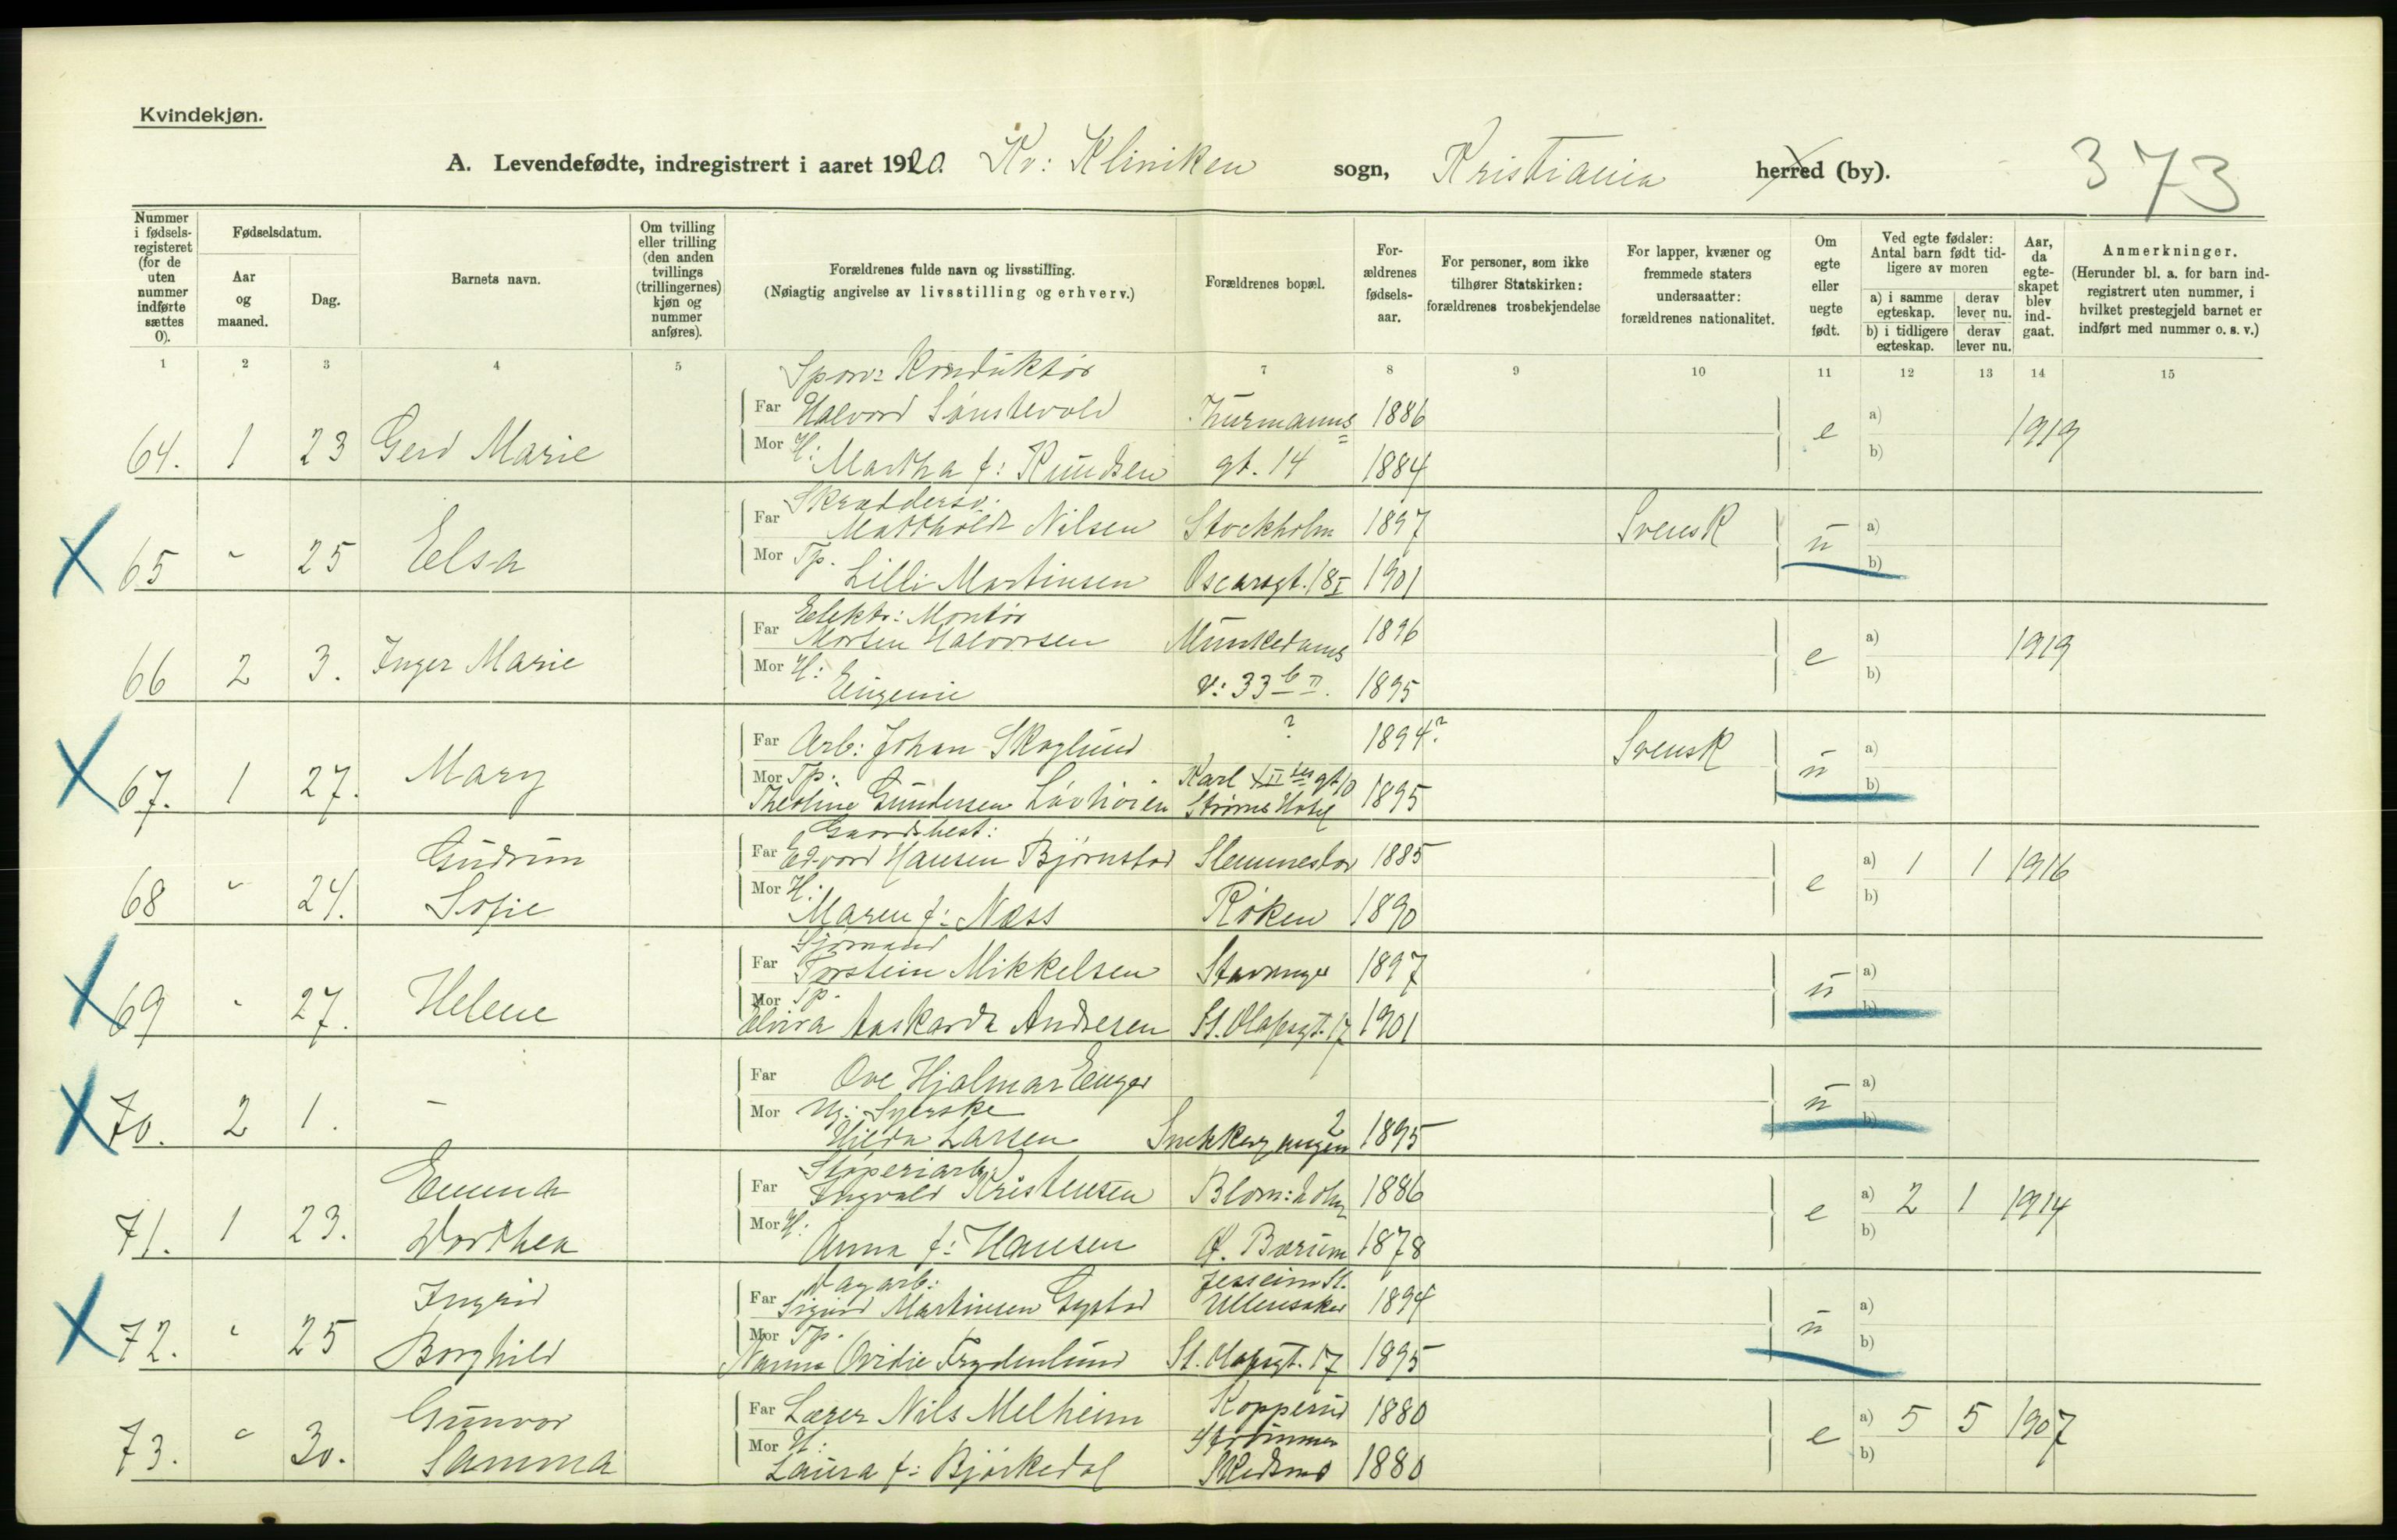 Kvindekjøn.
A. Levendefødte, indregistrert i aaret 1920. Kv: Kliniken sogn, Kristiania herred (by). 373
Nummer i fødsels-registeret (for de uten nummer indførte sættes 0).
Fødselsdatum.
Aar og maaned.
Dag.
Barnets navn.
Om tvilling eller trilling (den anden tvillings (trillingernes) kjøn og nummer anføres).
Forældrenes fulde navn og livsstilling.
(Nøiagtig angivelse av livsstilling og erhverv.)
Forældrenes bopæl.
For-ældrenes fødsels-aar.
For personer, som ikke tilhører Statskirken: forældrenes trosbekjendelse
For lapper, kvæner og fremmede staters undersaatter: forældrenes nationalitet.
Om egte eller uegte født.
Ved egte fødsler: Antal barn født tid-ligere av moren
a) i samme egteskap. derav lever nu.
b) i tidligere egteskap. derav lever nu.
Aar, da egte-skapet blev ind-gaat.
Anmerkninger.
(Herunder bl. a. for barn ind-registrert uten nummer, i hvilket prestegjeld barnet er indført med nummer o. s. v.)
1 2 3 4 5 7 8 9 10 11 12 13 14 15
Sporv: Konduktør
Far Halvord Sønstevold Thurmanns 1886 a)
64. 1 23 Gerd Marie e 1919
Mor H: Martha f: Knudsen gt. 14 1884 b)
Skræddersv.
Far Matthold Nilsen Stockholm 1897 Svensk a)
65 " 25 Elsa u
Mor Tp. Lilli Martinsen Oscarsgt. 18 I 1901 b)
Elektr: Montør
Far Morten Halvorsen Munkedams 1896 a)
66 2 3. Inger Marie e 1919
Mor H: Eugenie v: 33 b II. 1895 b)
Far Arb: Johan Skoglund ? 1894? Svensk a)
67. 1 27. Mary u
Mor Tp. Karl XII tes gt 10
Theoline Gundersen Strøms Hotel 1895 b)
Gaardsbest:
Far Edvard Hansen Bjørnstad Slemmestad 1885 a) 1 1 1916
68 " 24. Gudrun Sofie e
Mor H. Maren f: Næss Røken 1890 b)
Sjømand
Far Torstein Mikkelsen Stavanger 1897 a)
69 " 27. Helene u
Mor Tp.
Elvira Andresen St. Olafsgt. 17 1901 b)
Far Ove Hjalmar Enger a)
70. 2 1. — u
Mor Ug: Syerske
Hilda Larsen 2 1895 b)
Støperiarb.
Far Ingvald Kristensen 1886 a) 2 1 1914
71. 1 23. Emma Dorthea e
Mor H: Anna f: Hansen Ø. Bærum 1878 b)
Dagarb: Jessheim St.
Far Sigurd Martinsen Gystad Ullensaker 1894 a)
72. " 25 Ingrid Borghild u
Mor Tp.
Nanna Ovidie Frydenlund St. Olafsgt. 17 1895 b)
Far Lærer Nils Melheim Kopperud 1880 a) 5 5 1907
73. " 30. Gunvor Samma e
Mor H: Strømmen
Laura f: Bjørkedal Skedsmo 1880 b)